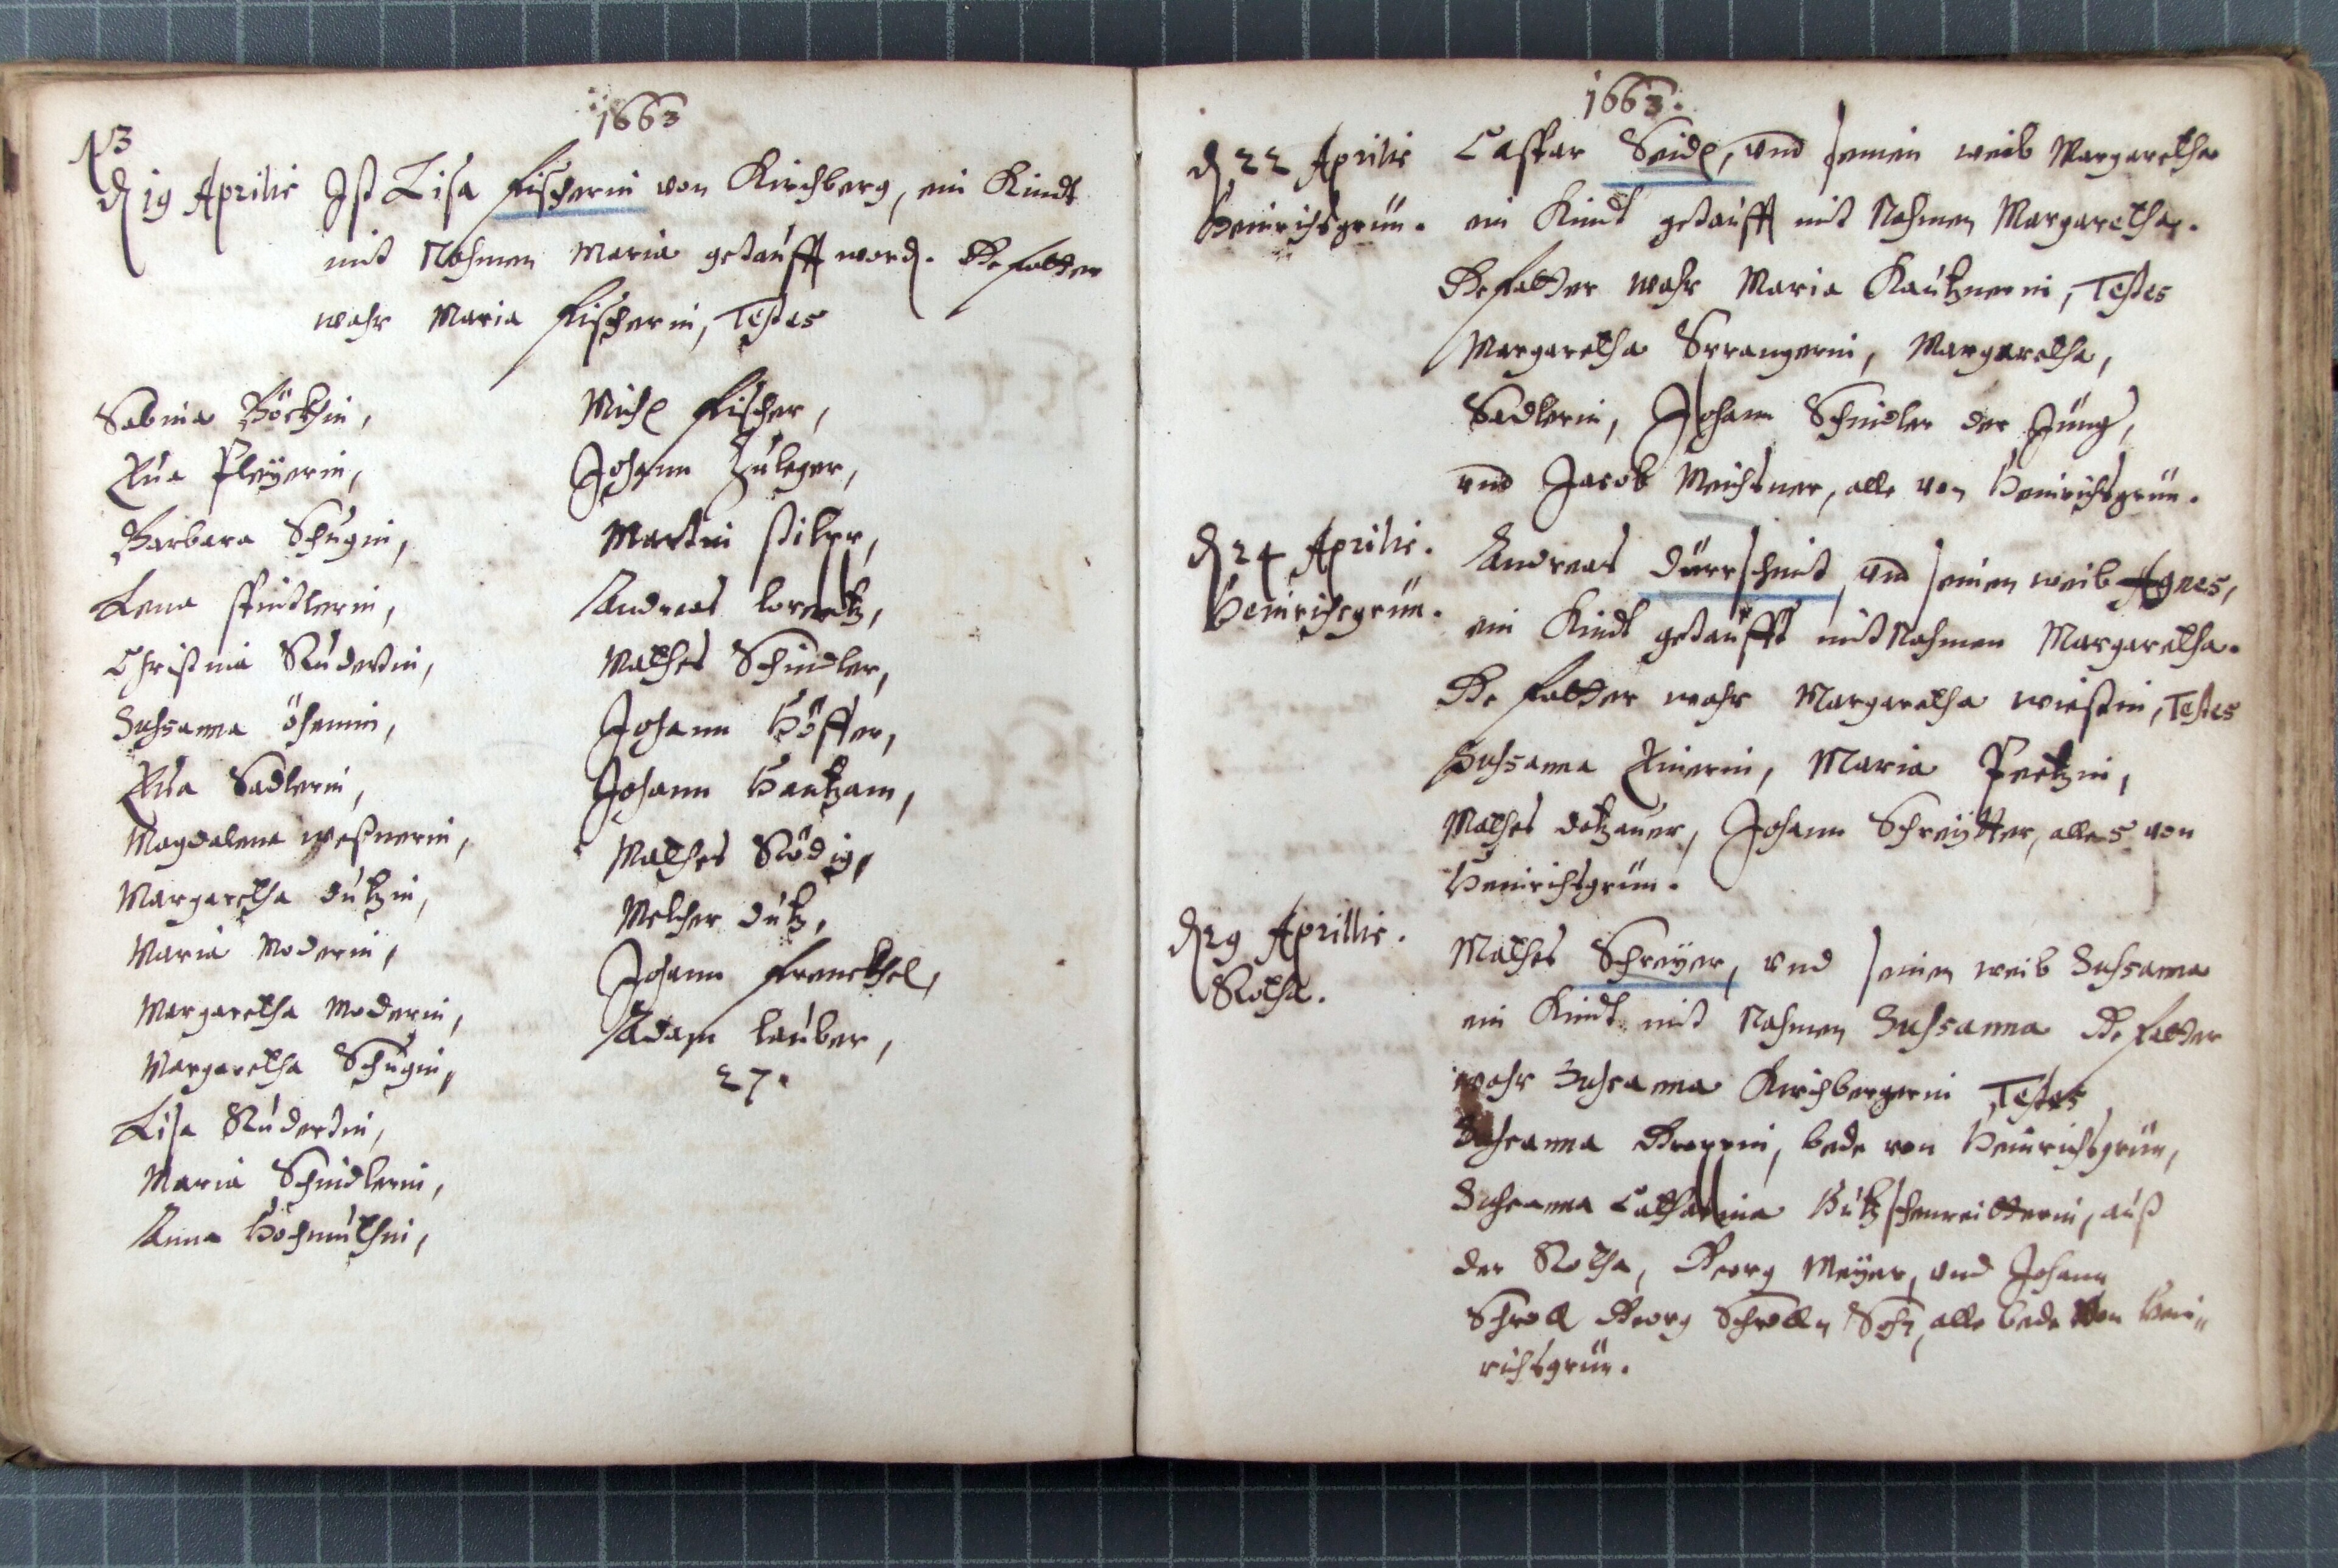 1663
N3
d 19 Aprilis Ist Lisa Fischerin von Kirchberg, ein Kindt
mit Nahmen Maria getaufft word. Gefatter
wahr Maria Fischerin, Testes
Sabina Böckhin,
Eua Pleÿerin,
Barbara Schugin,
Lena
Christina Rudertin,
Suhsanna
Eua Sadlerin,
Magdalena
Margaretha Dützin,
Maria Moderin,
Margaretha Moderin,
Margaretha Schugin,
Lisa Rudertin,
Maria Schindlerin,
Anna Hochmuthin,
Michl Fischer,
Johann Zuleger,
Martin
Andreas Lorentz,
Mathes Schindler,
Johann Höffer,
Johann
Mathes Rödig,
Melcher Dütz,
Johann Franckhel,
Adam Lauber,
27.
1663.
d 22 Aprilis
Heinrichsgrün.
Caspar Seidl, und seinen weib Margaretha
ein Kindt getaufft mit Nahmen Margaretha.
Gefatter wahr Maria Kautznerin, Testes
Margaretha Margaretha,
Sadlerin, Johann Schindler der Jung,
und Jacob Meichsner, alle von Heinrichsgrün.
d 24 Aprilis.
Heinrichsgrün.
Andreas Dürrschmit, und seinen weib Agnes,
ein Kindt getaufft mit Nahmen Margaretha.
Gefatter wahr Margaretha Testes
Suhsanna Maria
Mathes Dotzauer, Johann Schreÿtter, alles von
Heinrichsgrün.
d 29 Aprillis.
Rotha.
Mathes Schreÿer, und seinen weib Suhsanna
ein Kindt mit Nahmen Suhsanna Gefatter
wahr Suhsanna Kirchbergerin Testes
Suhsanna bede von Heinrichsgrün,
Suhsanna Catharina auß
der Rotha, Georg Meÿer, und Johann
Schroll Georg Schrolln Sohn, alle bede von Hein„
richsgrün.